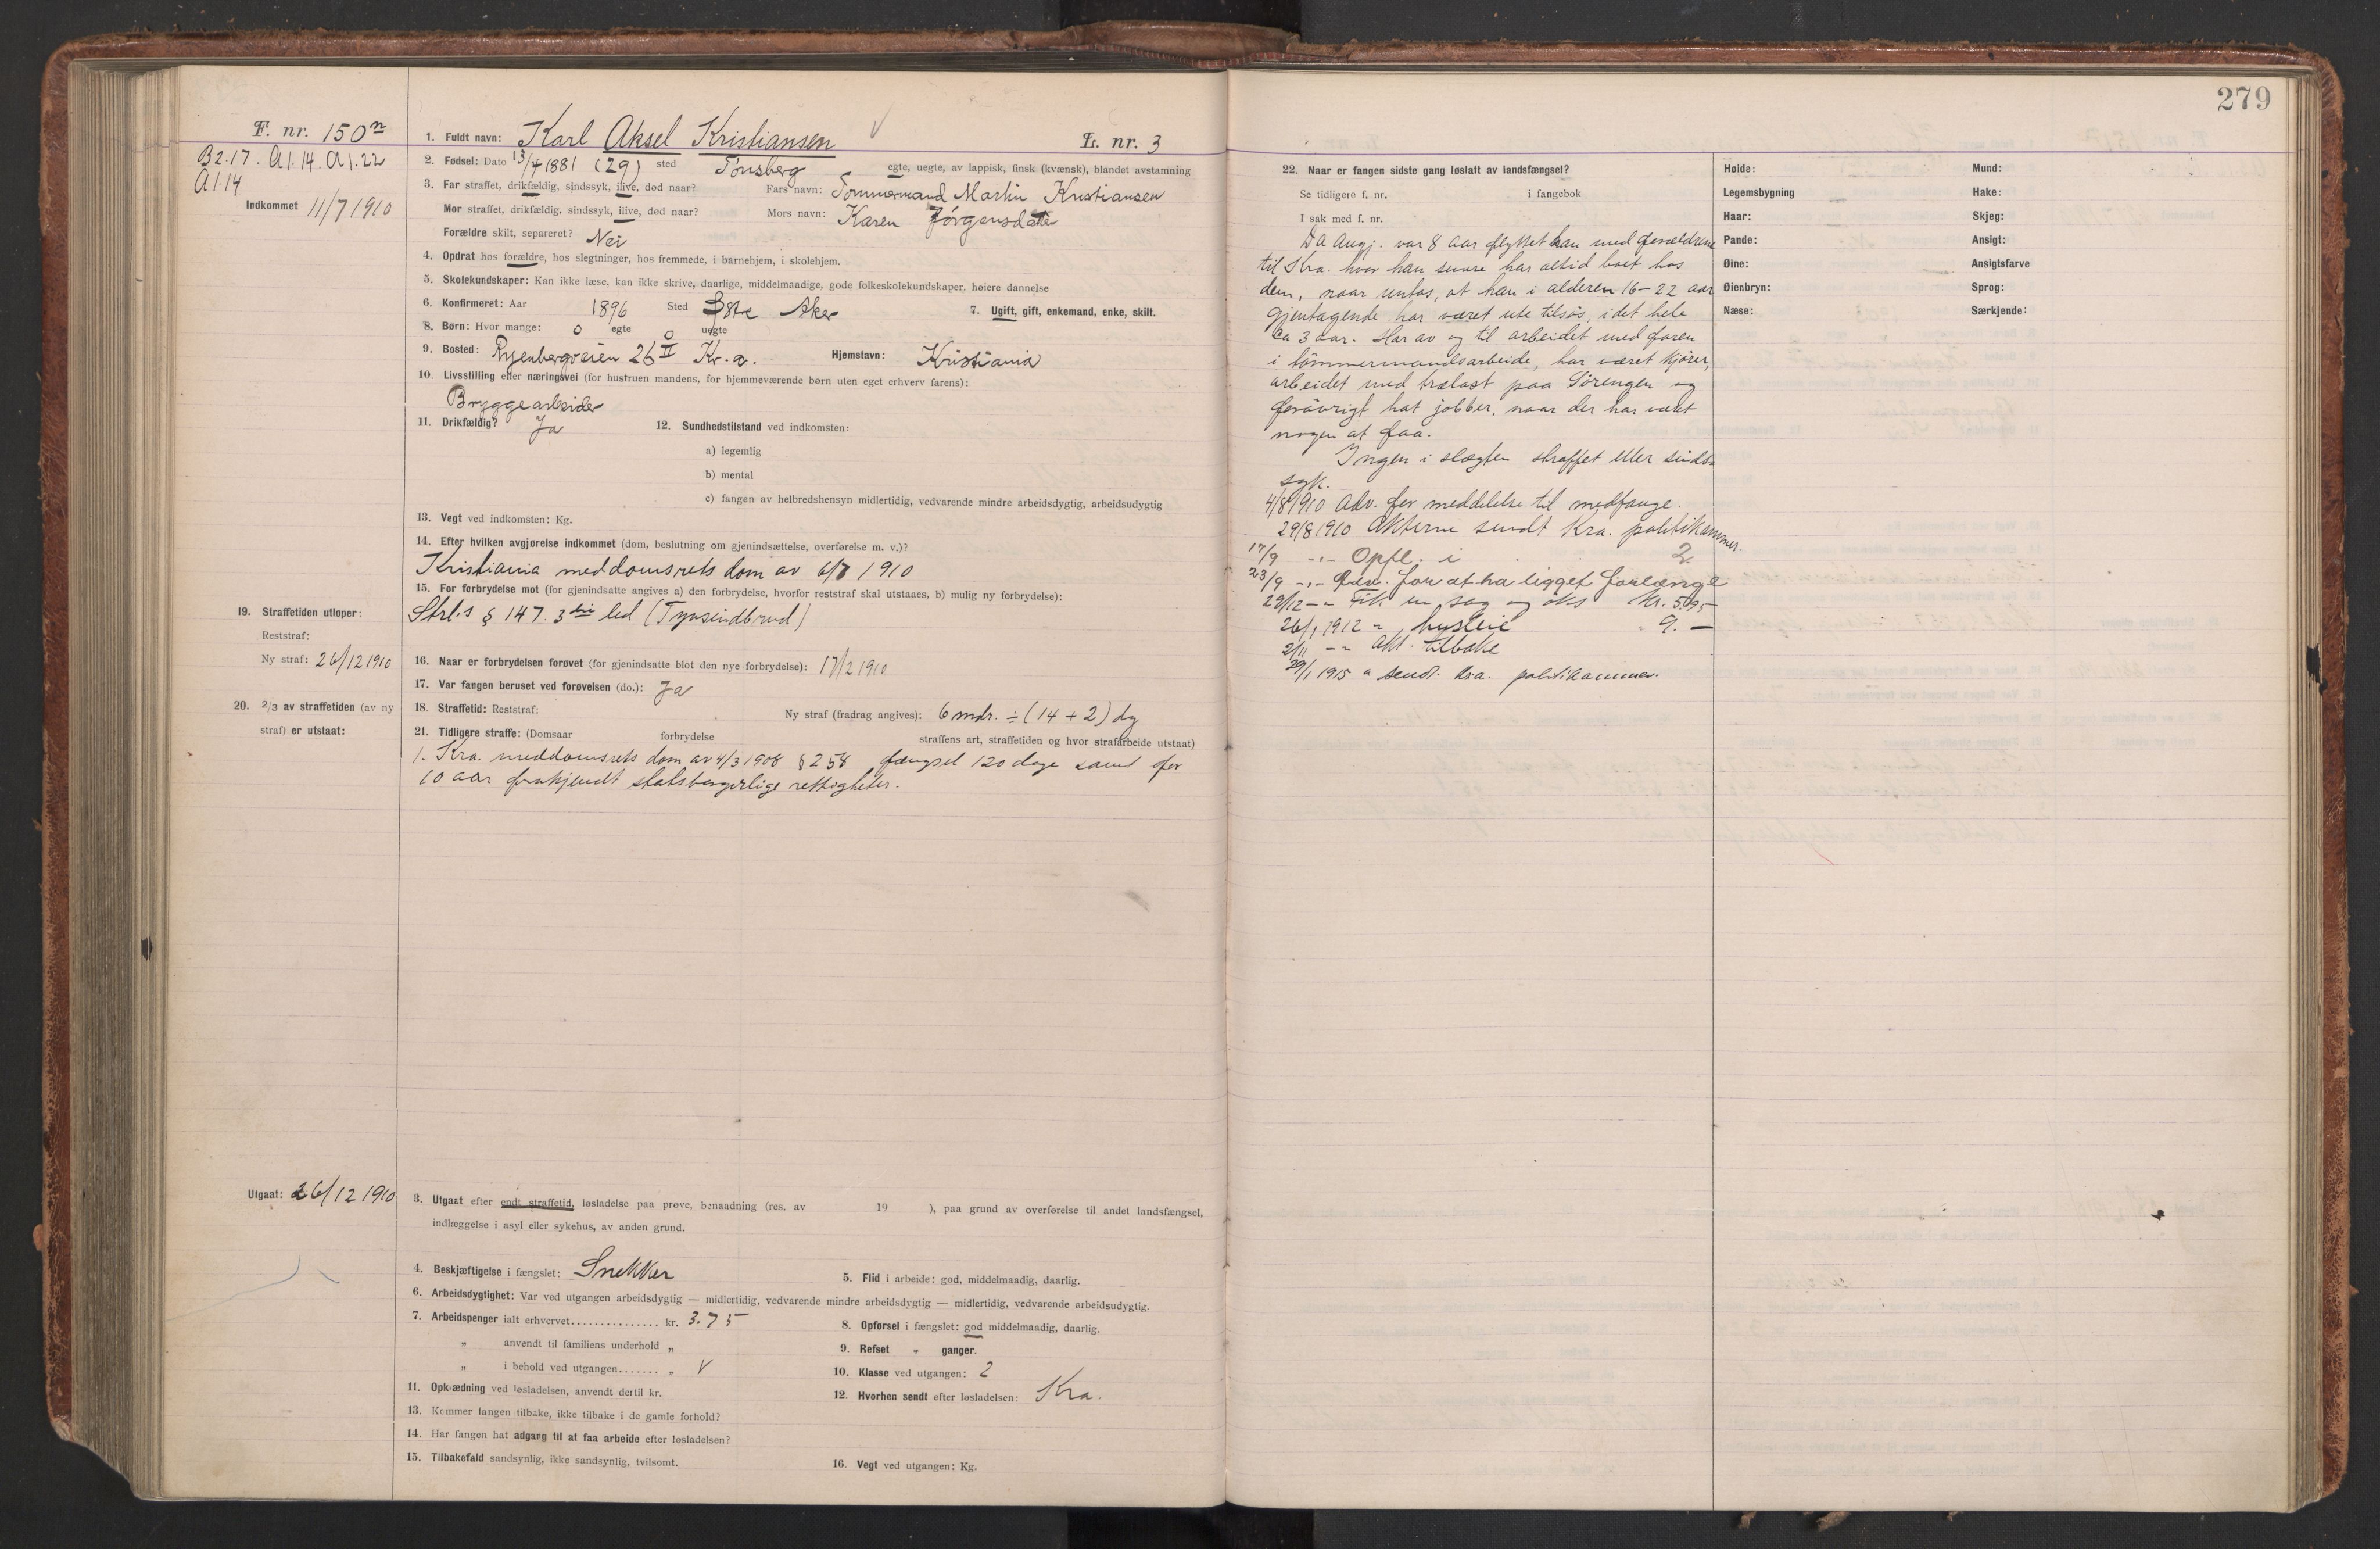 279
F. nr. 150ⁿ
B2.17. A1.14. A1.22
A1.14
Indkommet 11/7 1910
1. Fuldt navn: Karl Aksel Kristiansen
L. nr. 3
2. Fødsel: Dato 13/4 1881 (29) sted Tönsberg egte, uegte, av lappisk, finsk (kvænsk), blandet avstamning
3. Far straffet, drikfældig, sindssyk, ilive, død naar? Fars navn: Tömmermand Martin Kristiansen
Mor straffet, drikfældig, sindssyk, ilive, død naar? Mors navn: Karen Jörgensdatter
Forældre skilt, separeret? Nei
4. Opdrat hos forældre, hos slegtninger, hos fremmede, i barnehjem, i skolehjem.
5. Skolekundskaper: Kan ikke læse, kan ikke skrive, daarlige, middelmaadige, gode folkeskolekundskaper, høiere dannelse
6. Konfirmeret: Aar 1896 Sted Östre Aker 7. Ugift, gift, enkemand, enke, skilt.
8. Børn: Hvor mange: 0 egte 0 uegte
9. Bosted: Ryenbergveien 26 II Kr.a. Hjemstavn: Kristiania
10. Livsstilling eller næringsvei (for hustruen mandens, for hjemmeværende børn uten eget erhverv farens):
Bryggearbeider
11. Drikfældig? Ja 12. Sundhedstilstand ved indkomsten:
a) legemlig
b) mental
c) fangen av helbredshensyn midlertidig, vedvarende mindre arbeidsdygtig, arbeidsudygtig
13. Vegt ved indkomsten: Kg.
14. Efter hvilken avgjørelse indkommet (dom, beslutning om gjenindsættelse, overførelse m. v.)?
Kristiania meddomsrets dom av 6/7 1910
15. For forbrydelse mot (for gjenindsatte angives a) den forbrydelse, hvorfor reststraf skal utstaaes, b) mulig ny forbrydelse):
Strl.s § 147. 3die led (Tyvsindbrud)
19. Straffetiden utløper:
Reststraf:
Ny straf: 26/12 1910
16. Naar er forbrydelsen forøvet (for gjenindsatte blot den nye forbrydelse): 17/2 1910
17. Var fangen beruset ved forøvelsen (do.): Ja
20. 2/3 av straffetiden (av ny
straf) er utstaat:
18. Straffetid: Reststraf: Ny straf (fradrag angives): 6 mdr. ÷ (14 + 2) dg
21. Tidligere straffe: (Domsaar forbrydelse straffens art, straffetiden og hvor strafarbeide utstaat)
1. Kra. meddomsrets dom av 4/3 1908 § 258 fængsel 120 dage samt for
10 aar frakjendt statsborgerlige rettigheter.
Utgaat: 26/12 1910
3. Utgaat efter endt straffetid, løsladelse paa prøve, benaadning (res. av 19 ), paa grund av overførelse til andet landsfængsel,
indlæggelse i asyl eller sykehus, av anden grund.
4. Beskjæftigelse i fængslet: Snekker 5. Flid i arbeide: god, middelmaadig, daarlig.
6. Arbeidsdygtighet: Var ved utgangen arbeidsdygtig — midlertidig, vedvarende mindre arbeidsdygtig — midlertidig, vedvarende arbeidsudygtig.
7. Arbeidspenger ialt erhvervet............... kr. 3.75 8. Opførsel i fængslet: god middelmaadig, daarlig.
„ anvendt til familiens underhold „ 9. Refset - ganger.
„ i behold ved utgangen....... „ 10. Klasse ved utgangen: 2
11. Opklædning ved løsladelsen, anvendt dertil kr. 12. Hvorhen sendt efter løsladelsen: Kra.
13. Kommer fangen tilbake, ikke tilbake i de gamle forhold?
14. Har fangen hat adgang til at faa arbeide efter løsladelsen?
15. Tilbakefald sandsynlig, ikke sandsynlig, tvilsomt. 16. Vegt ved utgangen: Kg.
22. Naar er fangen sidste gang løslatt av landsfængsel?
Se tidligere f. nr. i fangebok
I sak med f. nr.
Da Angj. var 8 aar flyttet han med forældrene
til Kra. hvor han senere har altid boet hos
dem, naar untas, at han i alderen 16–22 aar
gjentagende har været ute tilsös, i det hele
ca 3 aar. Har av og til arbeidet med faren
i tömmermandsarbeide, har været kjörer,
arbeidet med trælast paa Sörengen og
forövrigt hat jobber, naar der har været
nogen at faa.
Ingen i slægten straffet eller sinds-
syk.
4/8 1910 Adv. for meddelelse til medfange.
29/8 1910 Akterne sendt Kra. politikammer.
17/9 -"- Opfl. i 2
23/9 -"- Adv. for at ha ligget forlænge
29/12 -"- Fik en sag og öks kr. 5.95
26/1 1912 " husleie " 9.—
2/11 -"- Akt. tilbake
29/1 1915 " sendt Kra. politikammer.
Høide:
Legemsbygning
Haar:
Pande:
Øine:
Øienbryn:
Næse:
Mund:
Hake:
Skjeg:
Ansigt:
Ansigtsfarve
Sprog:
Særkjende: